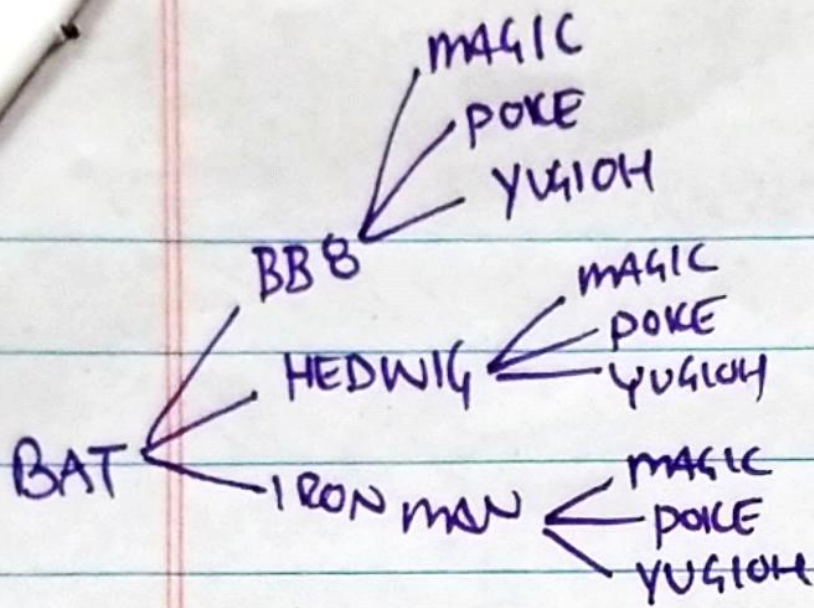 MAGIC
POKE
YUGIOH
BB8
MAGIC
POKE
HEDWIG
YUGIOH
BAT
IRON MAN
MAGIC
POKE
YUGIOH